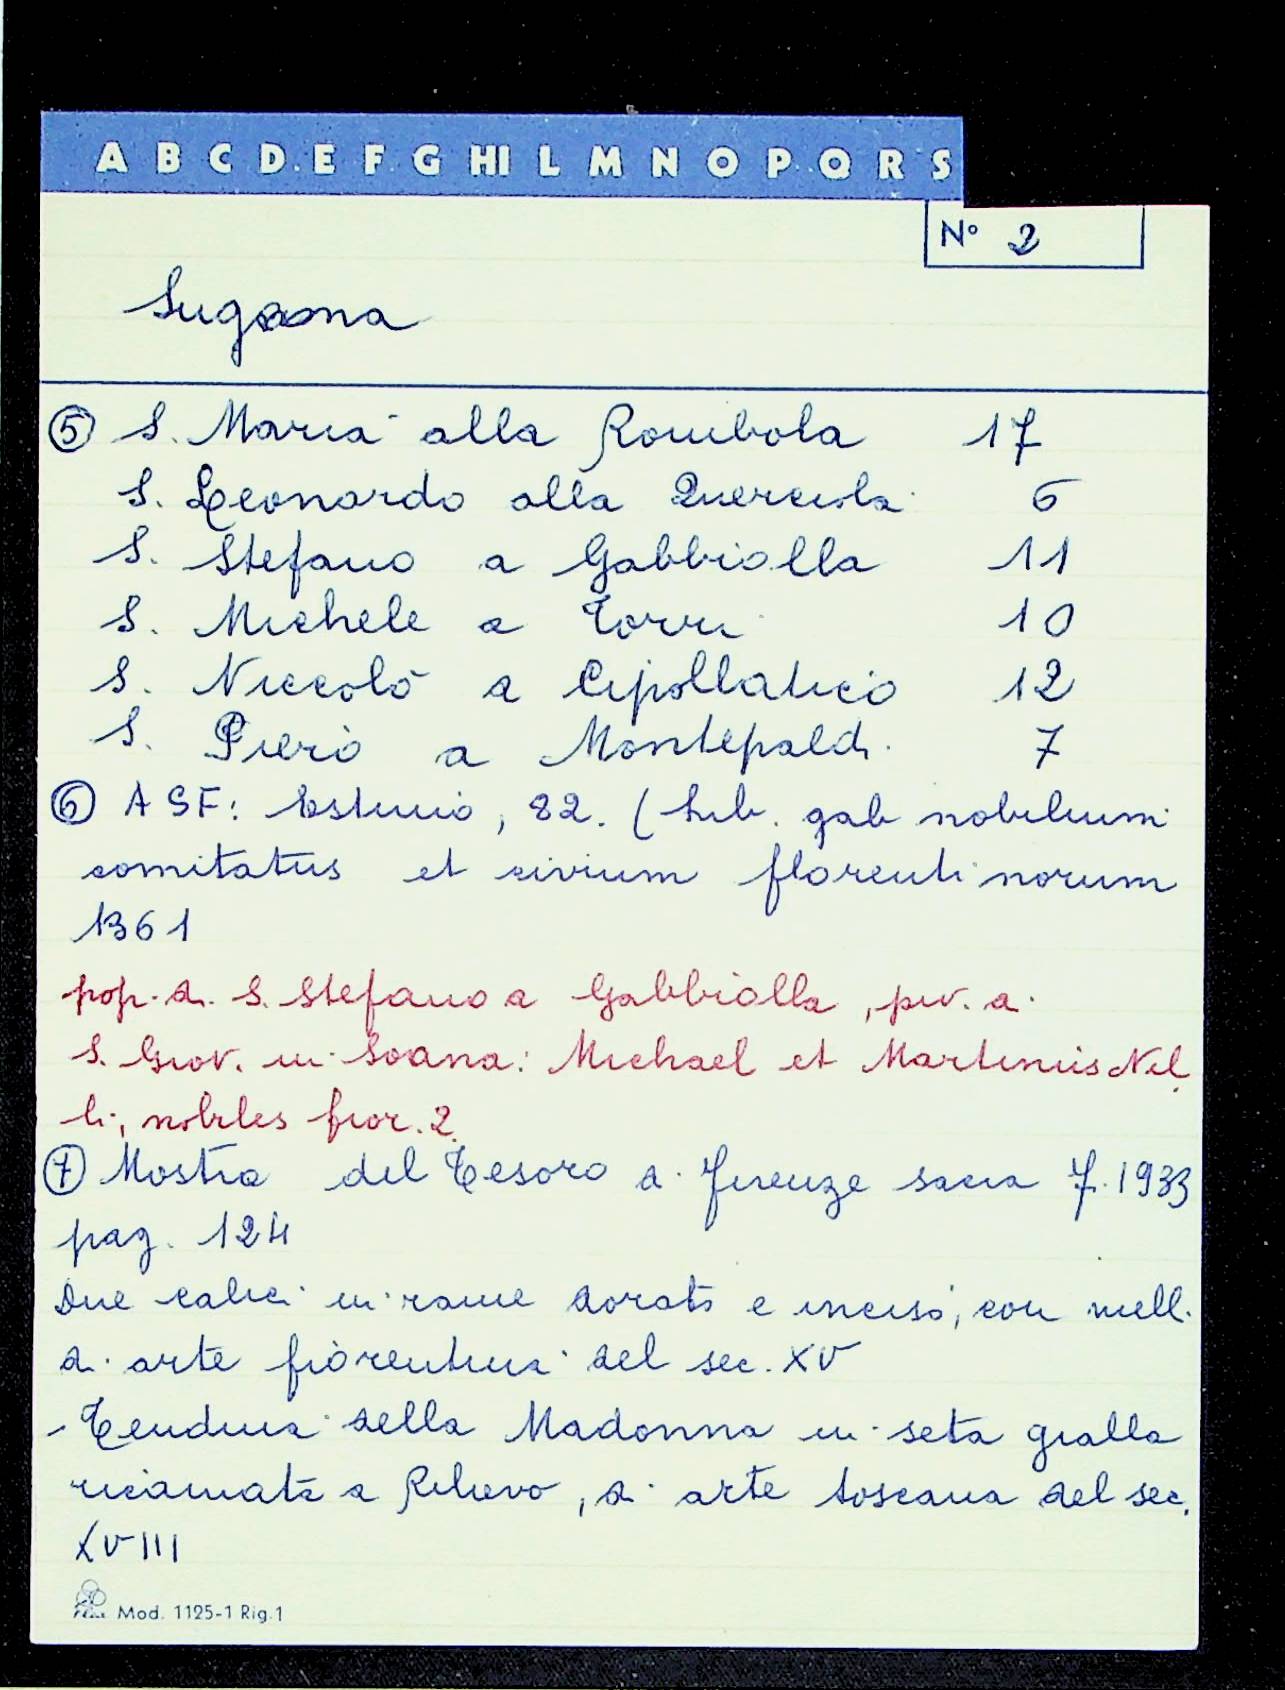 A B C D E F G HI L M N O P Q R S
N° 2
Sugana
⑤ S. Maria alla Rombola 17
S. Leonardo alla Querciola 6
S. Stefano a Gabbiolla 11
S. Michele a Torri 10
S. Niccolò a Cipollatico 12
S. Piero a Montepaldi 7
⑥ ASF: Estimo, 82. (Lib. gab nobilium
comitatus et civium florentinorum
1361
pop. di S. Stefano a Gabbiolla, piv. di
S. Giov. in Soana: Michael et Martinus Nel
li, nobiles fior. 2.
⑦ Mostra del Tesoro di Firenze sacra F. 1933
pag. 124
Due calici in rame dorato e inciso, con niell.
di arte fiorentina del sec. XV
- Tendina della Madonna in seta gialla
ricamata a Rilievo, di arte toscana del sec.
XVIII
Mod. 1125-1 Rig.1